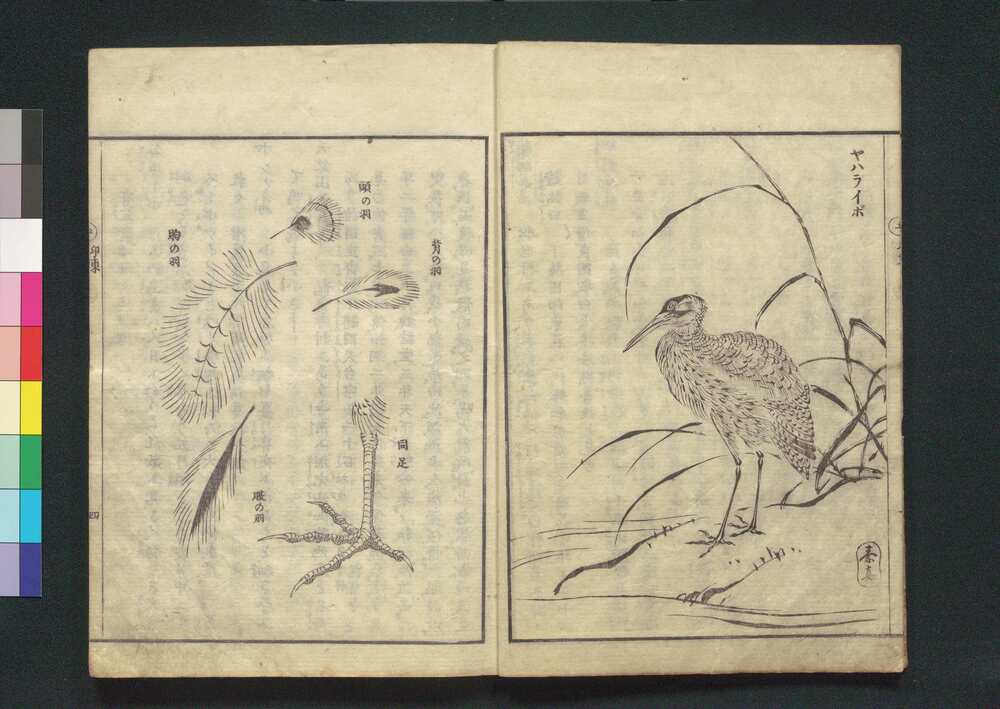 ヤハライボ
頭の羽
背の羽
胸の羽
同足
腹の羽
四